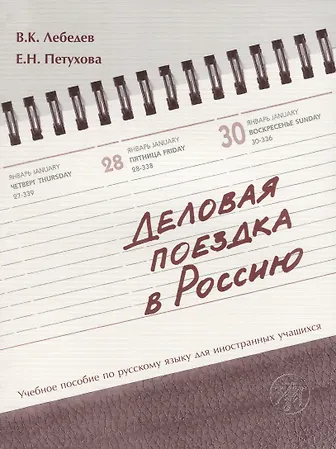 В.К. Лебедев
Е.Н. Петухова
ЯНВАРЬ JANUARY
ЧЕТВЕРГ THURSDAY
27-339
28
ЯНВАРЬ JANUARY
ПЯТНИЦА FRIDAY
28-338
30
ЯНВАРЬ JANUARY
ВОСКРЕСЕНЬЕ SUNDAY
30-336
ДЕЛОВАЯ
ПОЕЗДКА
В РОССИЮ
Учебное пособие по русскому языку для иностранных учащихся